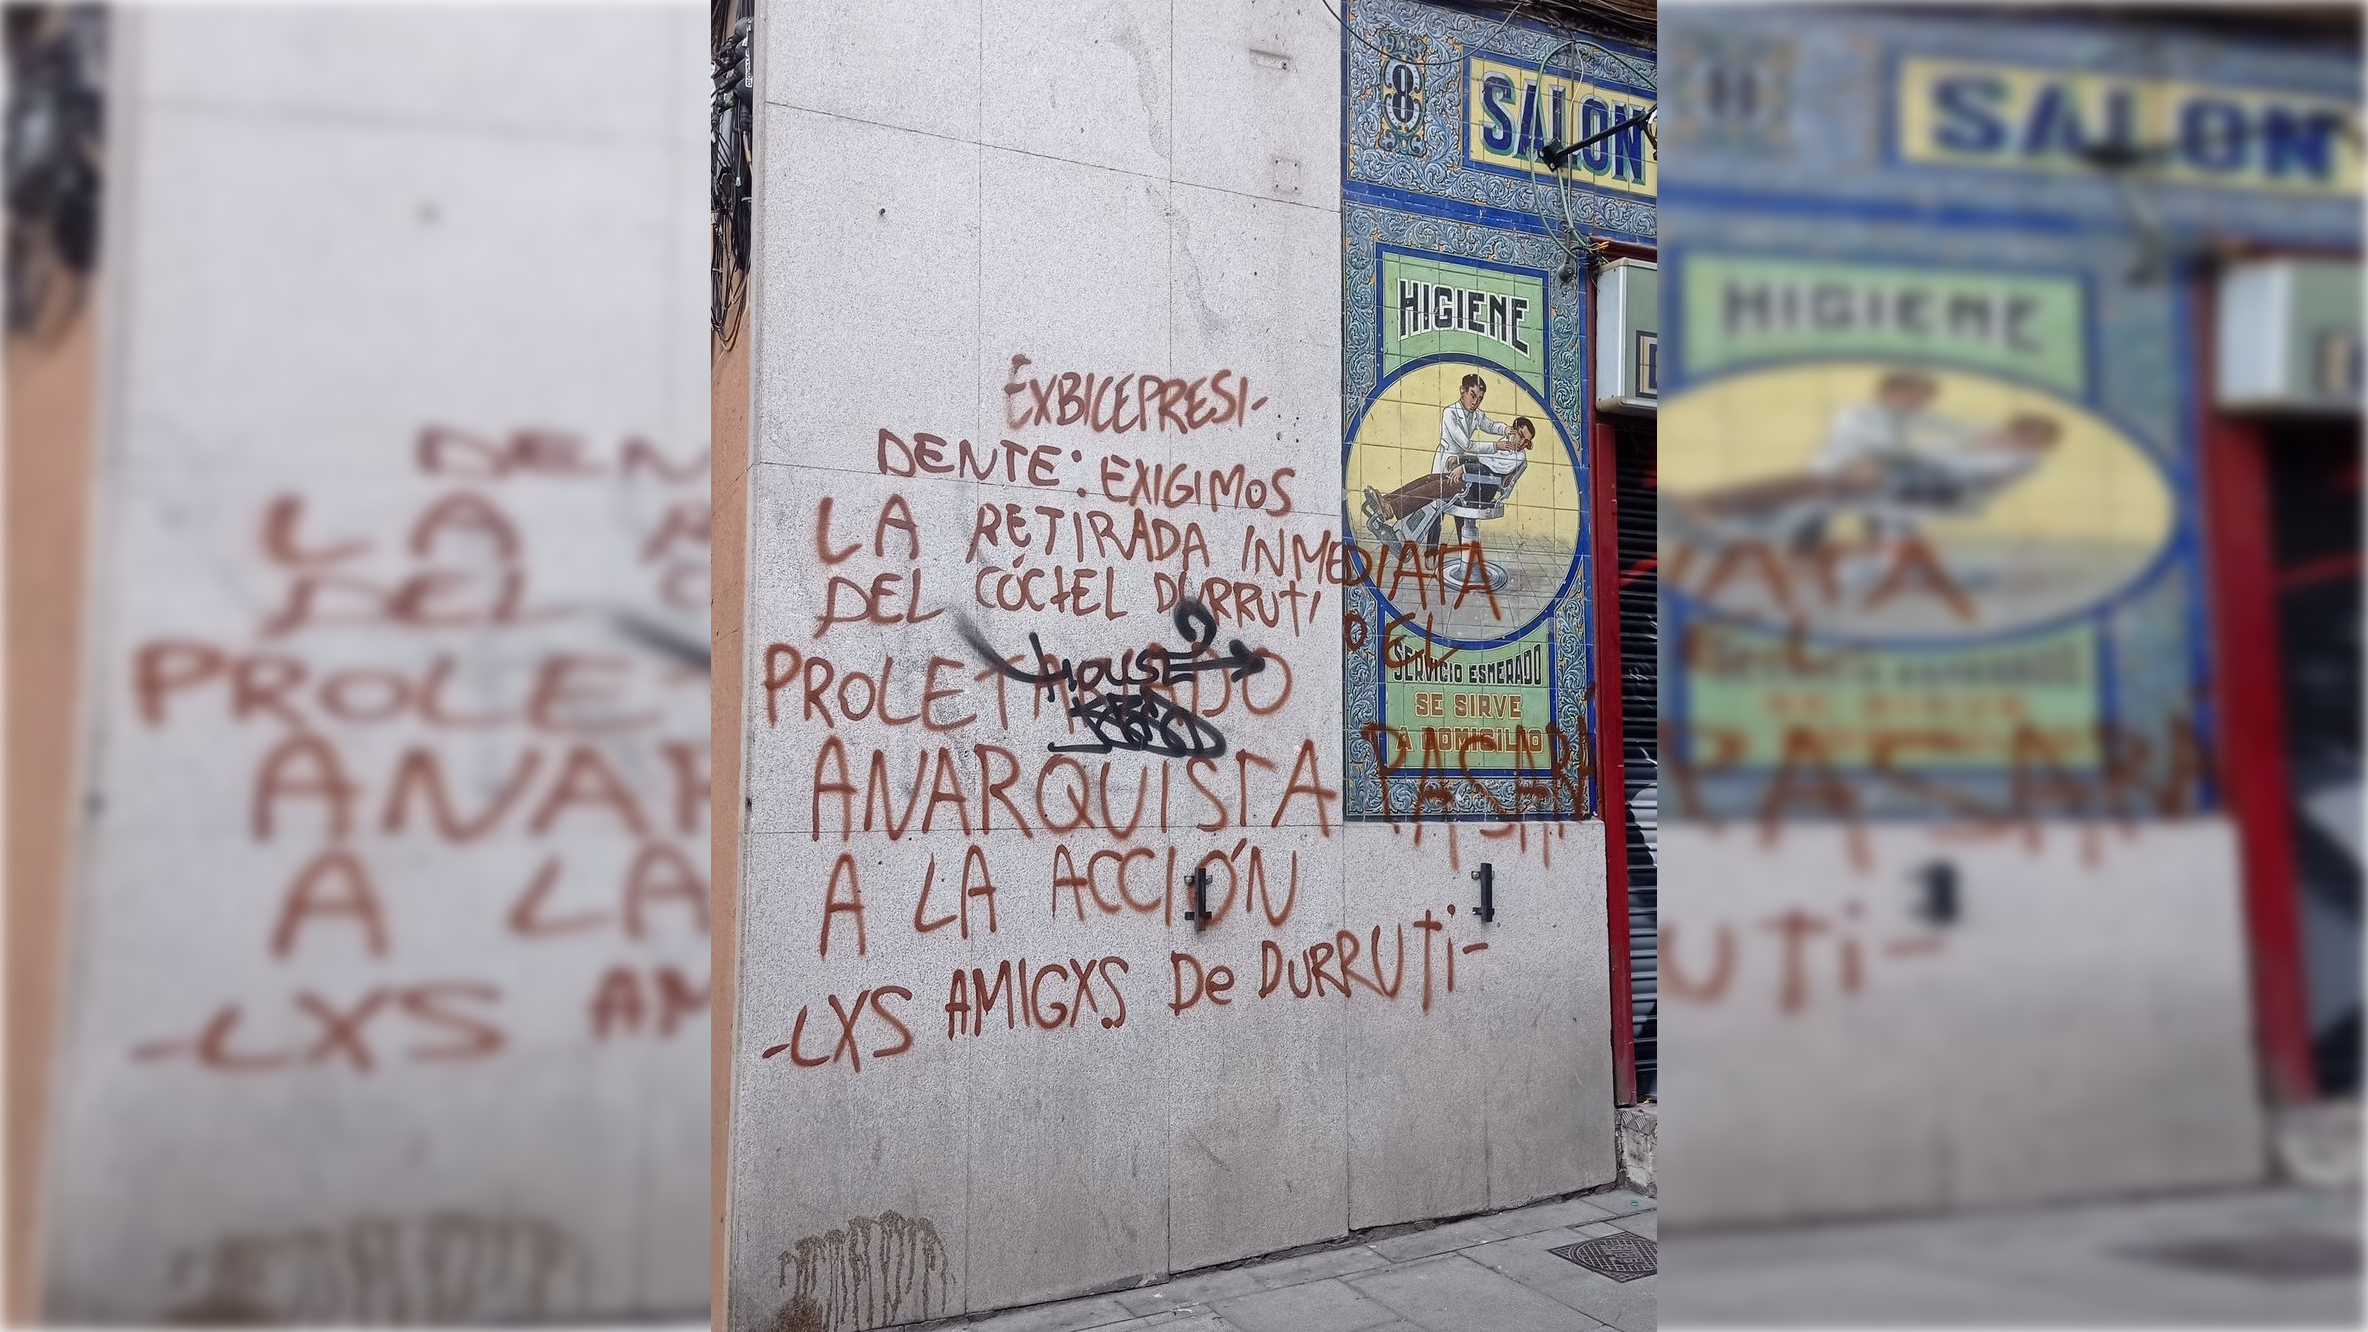 8
SALON
HIGIENE
EXBICEPRESI-
DENTE: EXIGIMOS
LA RETIRADA INMEDIATA
DEL CÓCTEL DURRUTI O EL
PROLETARIADO
ANARQUISTA PASARÁ
A LA ACCIÓN
-LXS AMIGXS De DURRUTI-
HOUSE
SERVICIO ESMERADO
SE SIRVE
A DOMICILIO